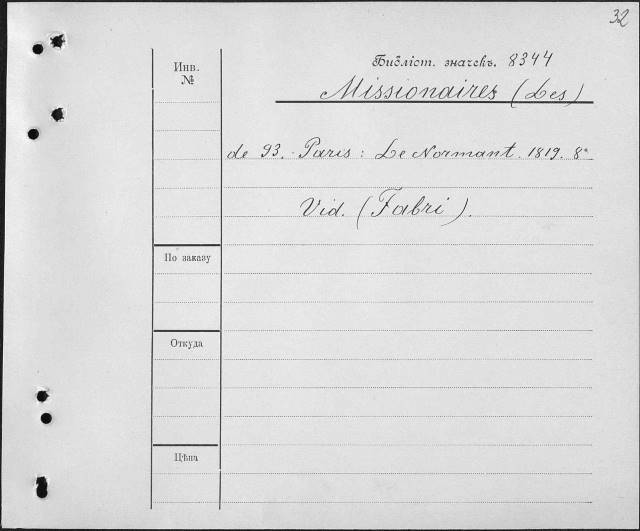 32
Инв.
№
Библіот. значекъ. 8344
Missionaires (Les)
de 93. Paris: Le Normant. 1819. 8°
Vid. (Fabri).
По заказу
Откуда
Цѣна